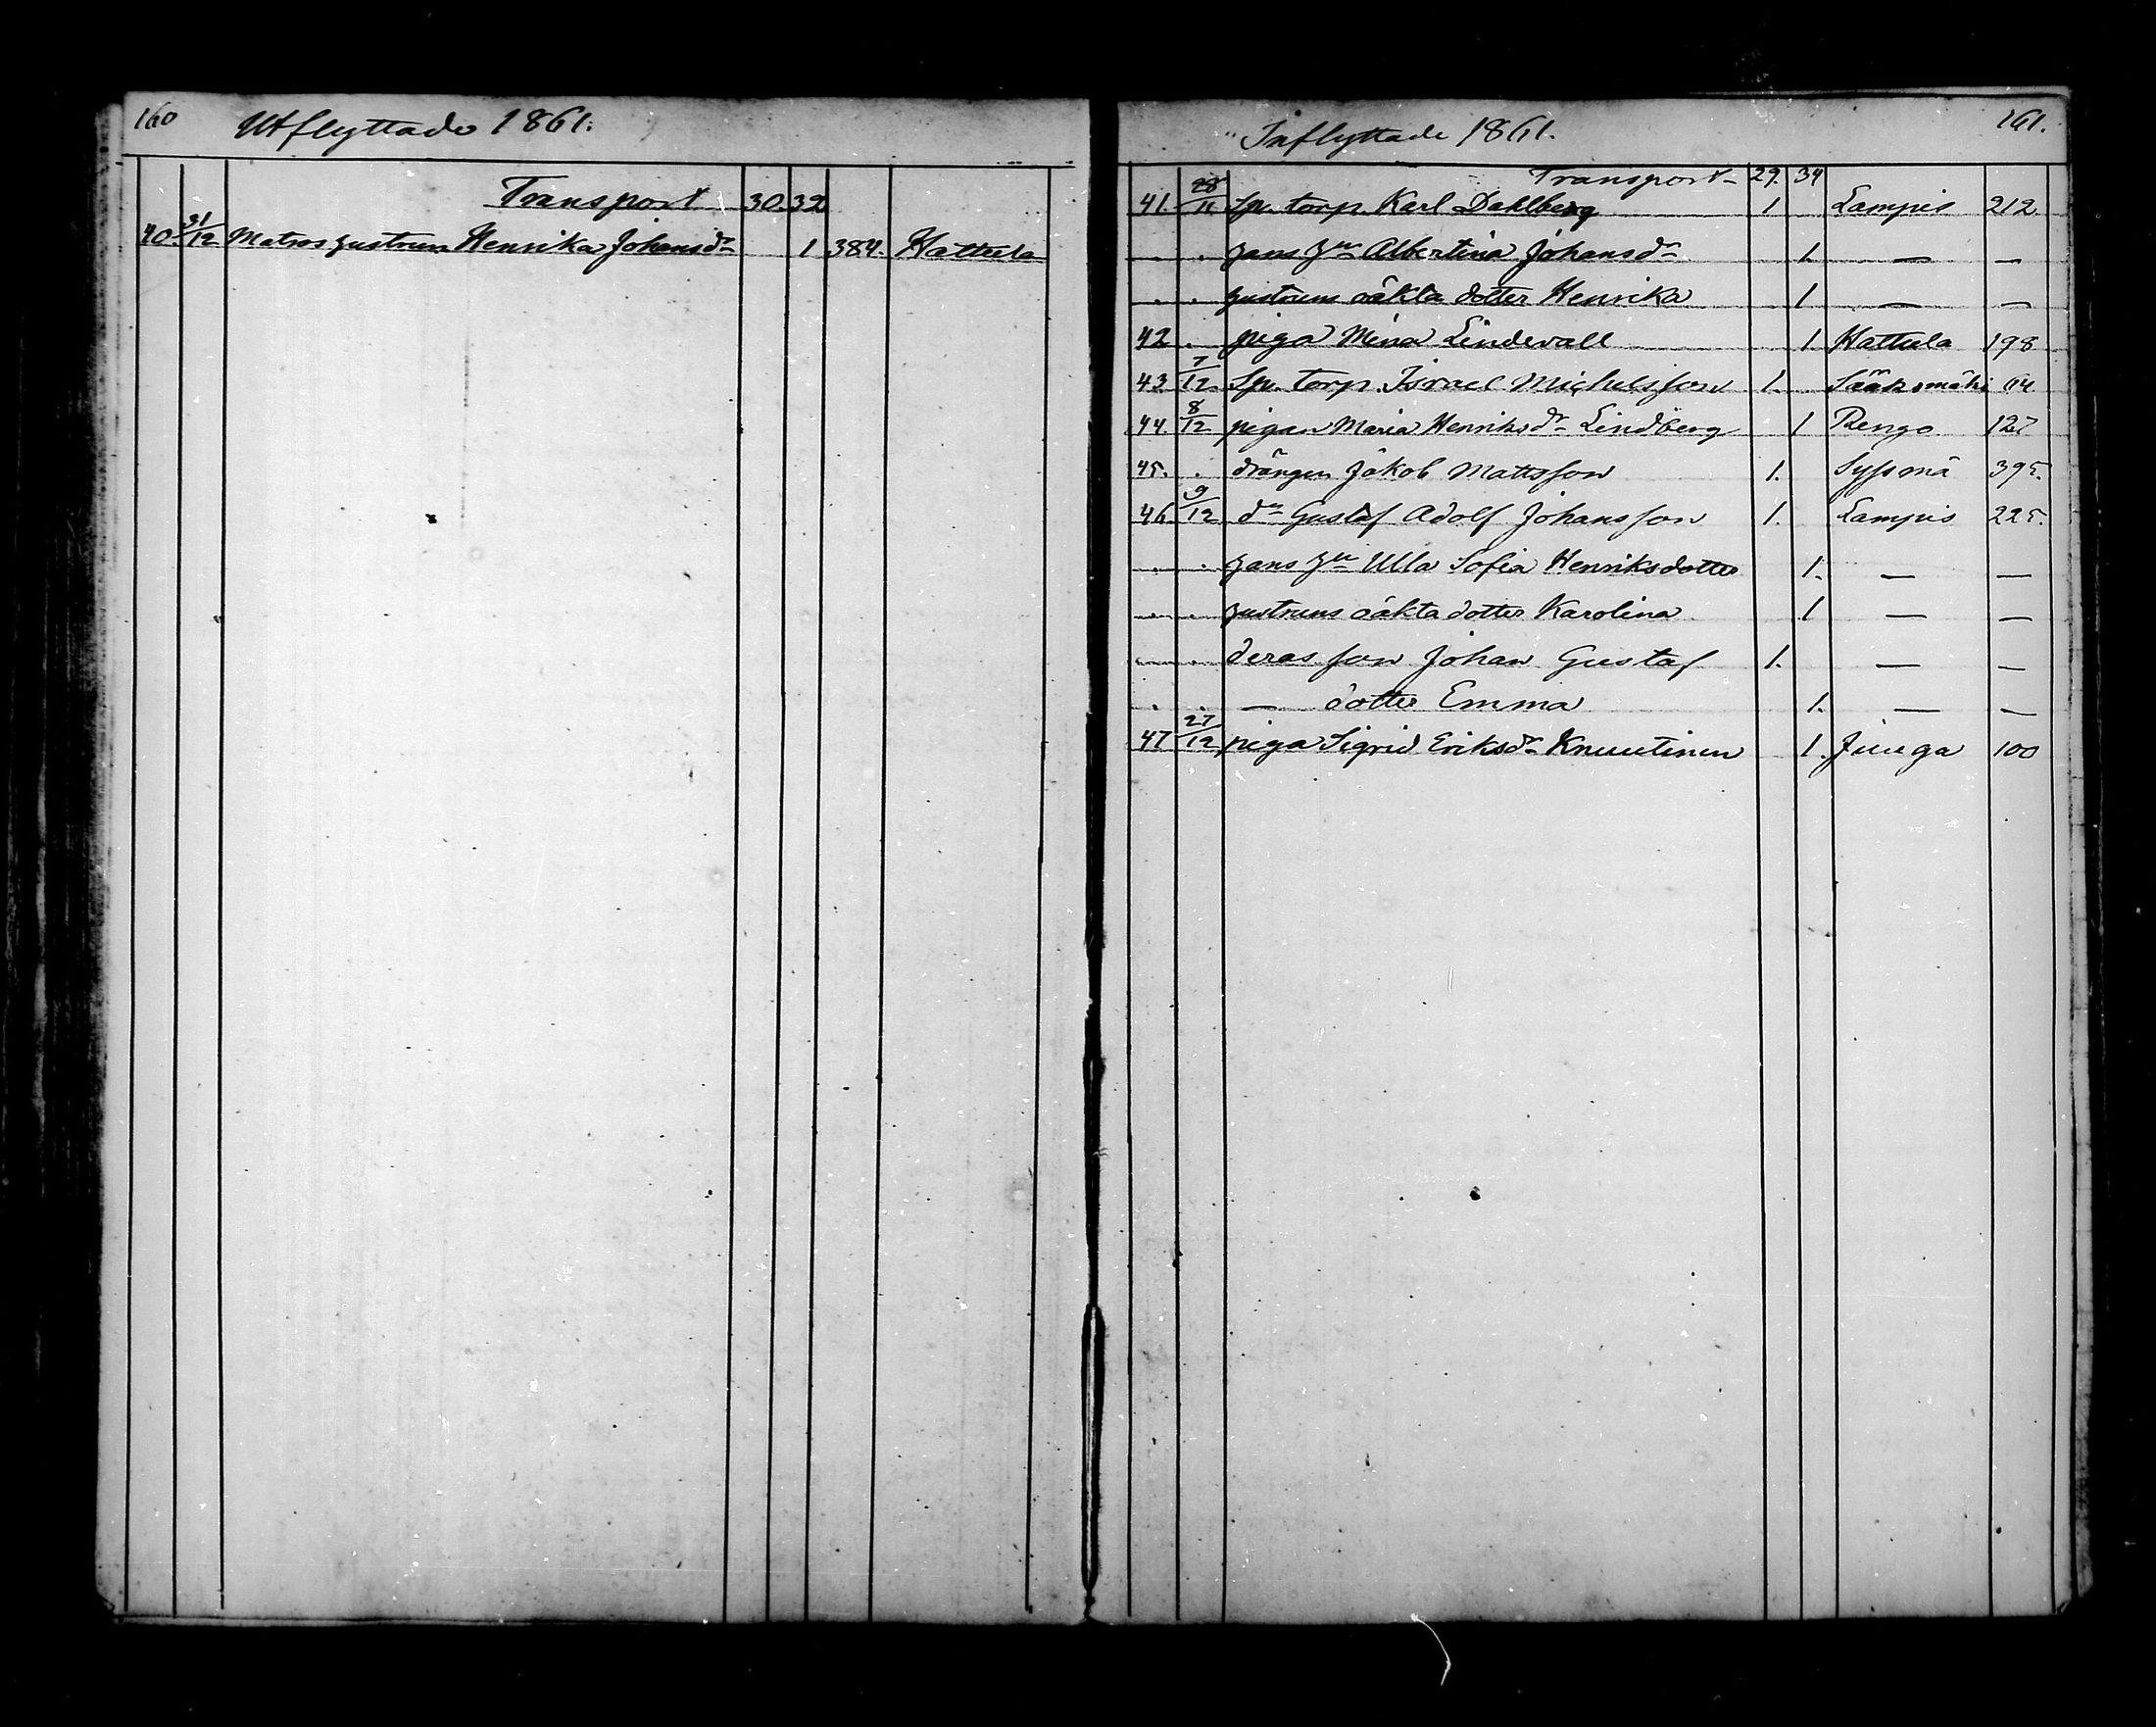 160 Utflyttade 1861.
Transport 30. 32
40. 31/12 Matros hustrun Henrika Johansdr 1 384. Hattula
Inflyttade 1861. 161.
Transport 29. 34
41. 28/11 Sp. torp. Karl Dahlberg 1 Lampis 212
. . hans hu Albertina Johansdr 1. — —
. . hustruns oäkta dotter Henrika 1 — —
42 . piga Mina Lindevall 1 Hattula 198
43 7/12 Sp. torp. Israel Michelsson 1. Sääksmäki 64
44. 8/12 pigan Maria Henriksdr Lindberg 1 Rengo 127
45. . drängen Jakob Mattsson 1. Syssmä 395.
46 9/12 dn Gustaf Adolf Johansson 1. Lampis 225.
. . hans hu Ulla Sofia Henriksdotter 1. — —
. . hustruns oäkta dotter Karolina 1 — —
. . deras son Johan Gustaf 1. — —
. . — dotter Emma 1. — —
47 27/12 piga Sigrid Eriksdr Knuutinen 1. Juuga 100